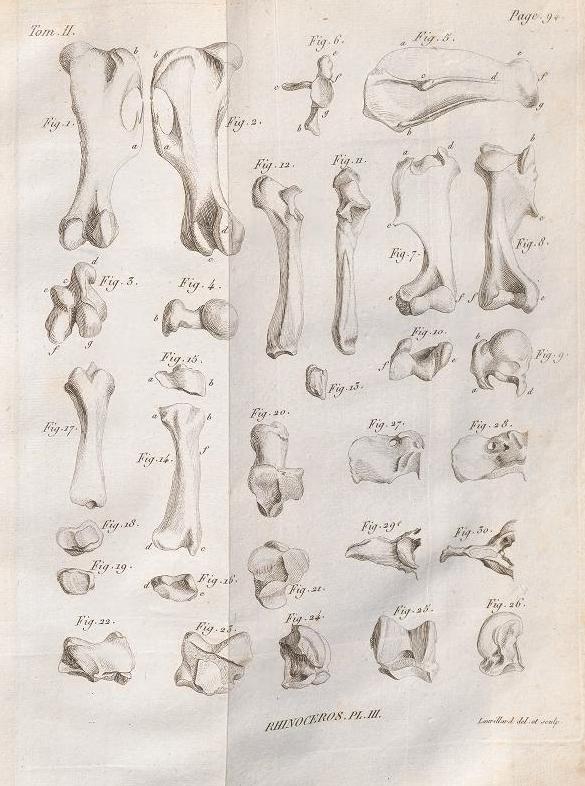 Tom. II.
Page. 94.
Fig. 6.
e
f
c
b
a
Fig. 5.
e
c
d
f
g
b
b
b
Fig. 1.
a
Fig. 2.
a
d
c
Fig. 12.
Fig. 11.
a
d
b
c
Fig. 7.
e
f
c
Fig. 8.
f
e
d
c
Fig. 3.
e
f
g
Fig. 4.
b
a
Fig. 10.
f
e
b
Fig. 9.
a
d
Fig. 15.
a
b
Fig. 13.
Fig. 17.
a
b
Fig. 14.
f
d
c
Fig. 20.
Fig. 27.
Fig. 28.
Fig. 18.
Fig. 29.
Fig. 30.
Fig. 19.
d
Fig. 16.
e
Fig. 21.
Fig. 22.
Fig. 23.
Fig. 24.
Fig. 25.
Fig. 26.
RHINOCEROS. PL. III.
Laurillard del. et sculp.